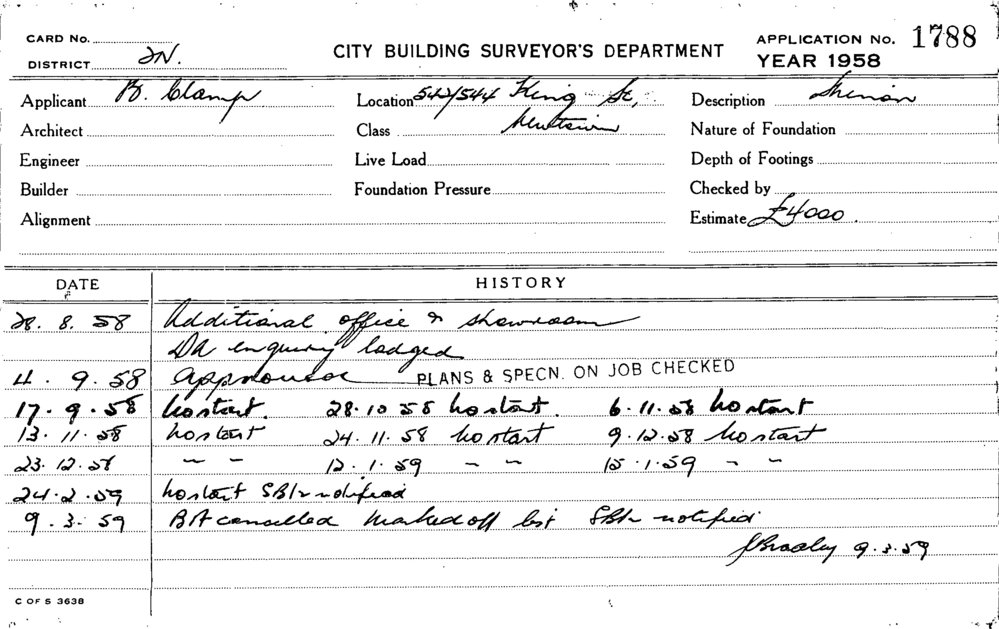 CARD No.
DISTRICT 2N.
CITY BUILDING SURVEYOR'S DEPARTMENT
APPLICATION No. 1788
YEAR 1958
Applicant B. Clamp
Location 542/544 King St,
Description
Architect
Class Newtown
Nature of Foundation
Engineer
Live Load
Depth of Footings
Builder
Foundation Pressure
Checked by
Alignment
Estimate £4000
DATE HISTORY
28. 8. 58 Additional office & showroom
DA enquiry lodged
4. 9. 58 Approved PLANS & SPECN. ON JOB CHECKED
17. 9. 58 No start. 28.10 58 No start. 6.11.58 No start
13. 11. 58 No start 24.11.58 No start 9.12.58 No start
23. 12. 58 " " 12.1.59 " " 15.1.59 " "
24. 2. 59 No start SBI notified
9. 3. 59 BA cancelled Marked off list SBI notified
9.3.59
C OF S 3638